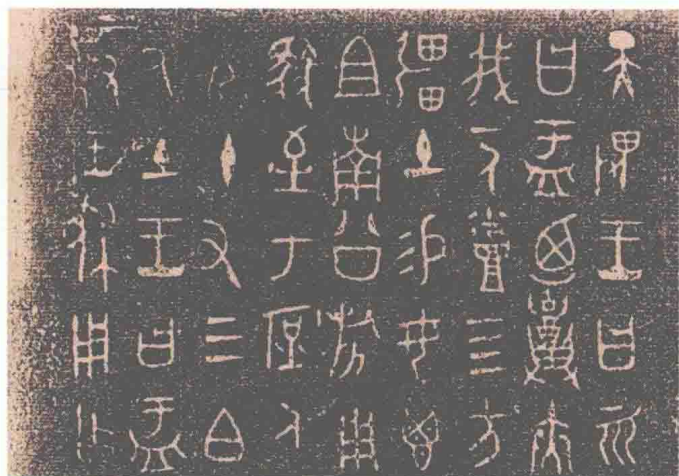 天畏王曰
曰盂迺召夾
我一人烝四方
疆土易女鬯
且南公旂用
馭至于庶人
十又三白
氒土王曰盂
對王休用乍